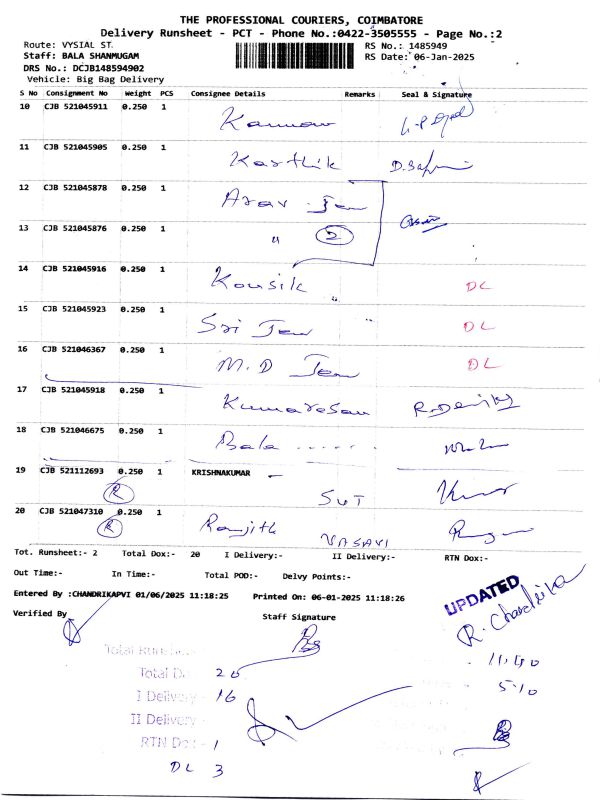 THE PROFESSIONAL COURIERS, COIMBATORE
Delivery Runsheet - PCT - Phone No.:0422-3505555 - Page No.:2
Route: VYSIAL ST. RS No.: 1485949
Staff: BALA SHANMUGAM RS Date: 06-Jan-2025
DRS No.: DCJB148594902
Vehicle: Big Bag Delivery
S No Consignment No Weight PCS Consignee Details Remarks Seal & Signature
10 CJB 521045911 0.250 1 Kannan
11 CJB 521045905 0.250 1 Karthik
12 CJB 521045878 0.250 1 Arav Jew
13 CJB 521045876 0.250 1 " 2
14 CJB 521045916 0.250 1 Kousik DL
15 CJB 521045923 0.250 1 Sri Jew DL
16 CJB 521046367 0.250 1 M.D Jew DL
17 CJB 521045918 0.250 1 Kumaresan
18 CJB 521046675 0.250 1 Bala ......
19 CJB 521112693 0.250 1 KRISHNAKUMAR
R SVT
20 CJB 521047310 0.250 1 Ranjith VASAVI
R
Tot. Runsheet:- 2 Total Dox:- 20 I Delivery:- II Delivery:- RTN Dox:-
Out Time:- In Time:- Total POD:- Delvy Points:-
Entered By :CHANDRIKAPVI 01/06/2025 11:18:25 Printed On: 06-01-2025 11:18:26
Verified By Staff Signature
UPDATED
R. Chandrika
Total Runsheet 11.40
Total Dox 20 5.10
I Delivery - 16
II Delivery -
RTN Dox - 1
DL 3